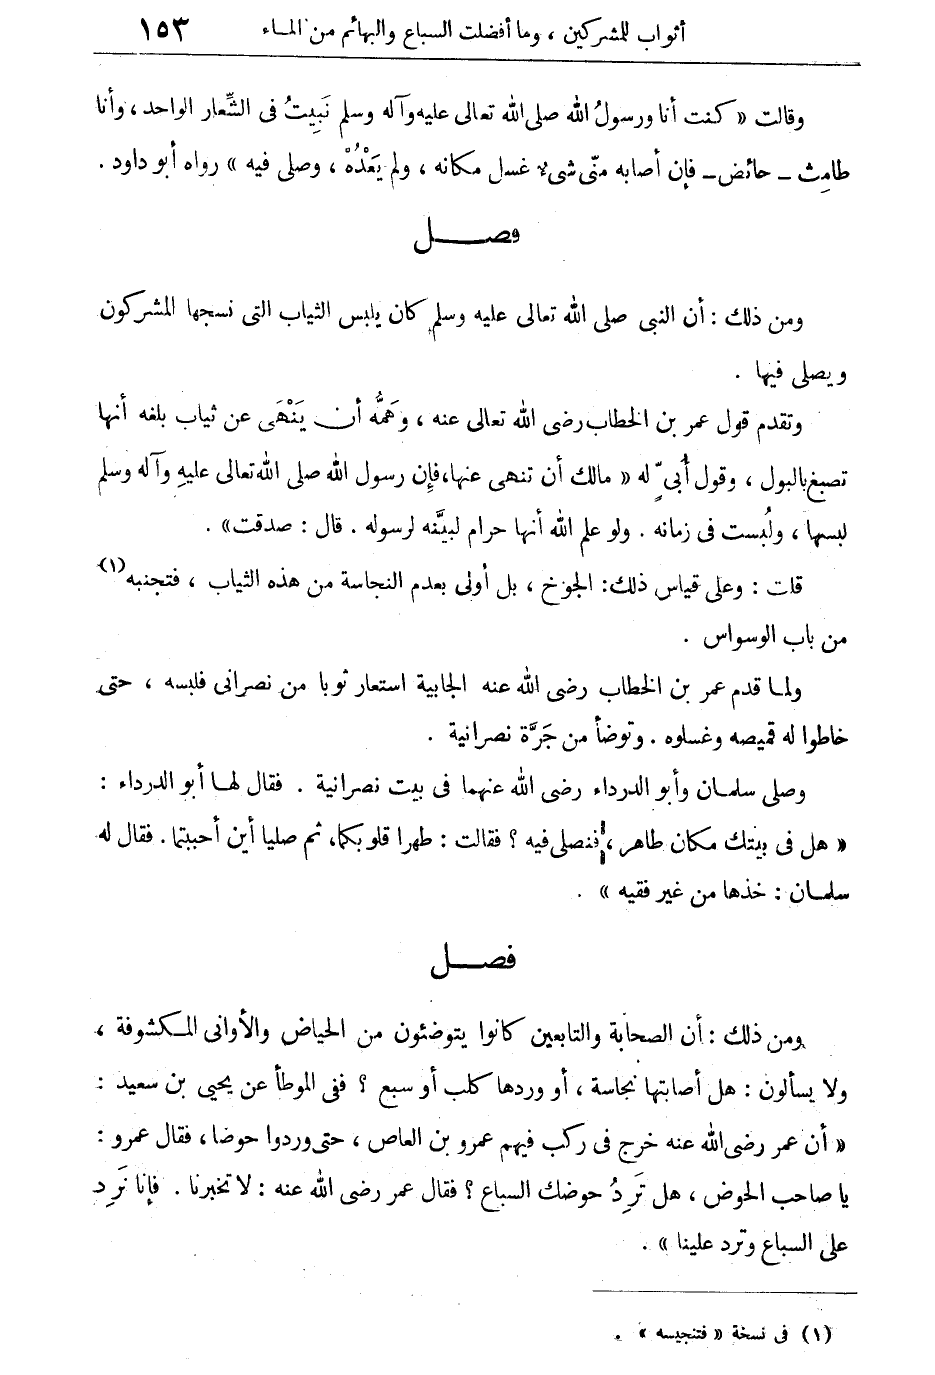 أثواب للمشركين ، وما أفضلت السباع والبهائم من الماء ١٥٣
وقالت « كنت أنا ورسولُ الله صلى الله تعالى عليه وآله وسلم نَبِيتُ فى الشِّعار الواحد ، وأنا
طامِث ــ حائض ــ فإن أصابه منّى شىء غسل مكانه ، ولم يَعْدُهْ ، وصلى فيه » رواه أبو داود .
فصـــل
ومن ذلك : أن النبى صلى الله تعالى عليه وسلم كان يلبس الثياب التى نسجها المشركون
ويصلى فيها .
وتقدم قول عمر بن الخطاب رضى الله تعالى عنه ، وهَمُّه أن يَنْهَى عن ثياب بلغه أنها
تصبغ بالبول ، وقول أُبىّ له « مالك أن تنهى عنها، فإن رسول الله صلى الله تعالى عليه وآله وسلم
لبسها ، ولُبست فى زمانه . ولو علم الله أنها حرام لبيَّنه لرسوله . قال : صدقت» .
قات : وعلى قياس ذلك: الجوخ ، بل أولى بعدم النجاسة من هذه الثياب ، فتجنبه (١)
من باب الوسواس .
ولما قدم عمر بن الخطاب رضى الله عنه الجابية استعار ثوبا من نصرانى فلبسه ، حتى
خاطوا له قميصه وغسلوه . وتوضأ من جَرَّة نصرانية .
وصلى سلمان وأبو الدرداء رضى الله عنهما فى بيت نصرانية . فقال لهـا أبو الدرداء :
« هل فى بيتك مكان طاهر ، فنصلى فيه ؟ فقالت : طهرا قلوبكما، ثم صليا أين أحببتما. فقال له
سلمـان : خذها من غير فقيه » .
فصـــل
ومن ذلك : أن الصحابة والتابعين كانوا يتوضئون من الحياض والأوانى المـكشوفة ،
ولا يسألون : هل أصابتها نجاسة ، أو وردها كلب أو سبع ؟ ففى الموطأ عن يحيى بن سعيد :
« أن عمر رضى الله عنه خرج فى ركب فيهم عمرو بن العاص ، حتى وردوا حوضا ، فقال عمرو :
يا صاحب الحوض ، هل تَرِدُ حوضك السباع ؟ فقال عمر رضى الله عنه : لا تخبرنا . فإنا نَرِد
على السباع وترد علينا » .
(١) فى نسخة « فتنجيسه » .